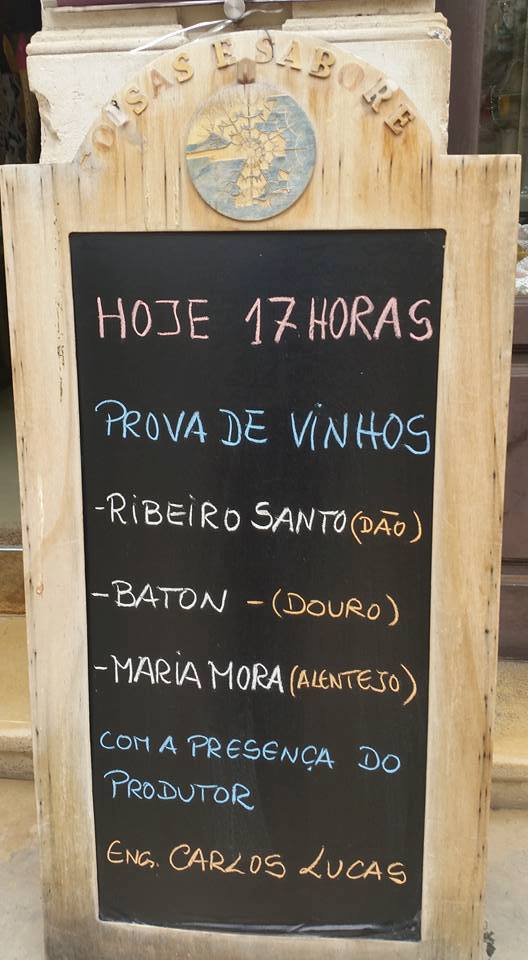 COISAS E SABORE
HOJE 17 HORAS
PROVA DE VINHOS
-RIBEIRO SANTO (DÃO)
-BATON - (DOURO)
-MARIA MORA (ALENTEJO)
COM A PRESENÇA DO
PRODUTOR
ENG. CARLOS LUCAS